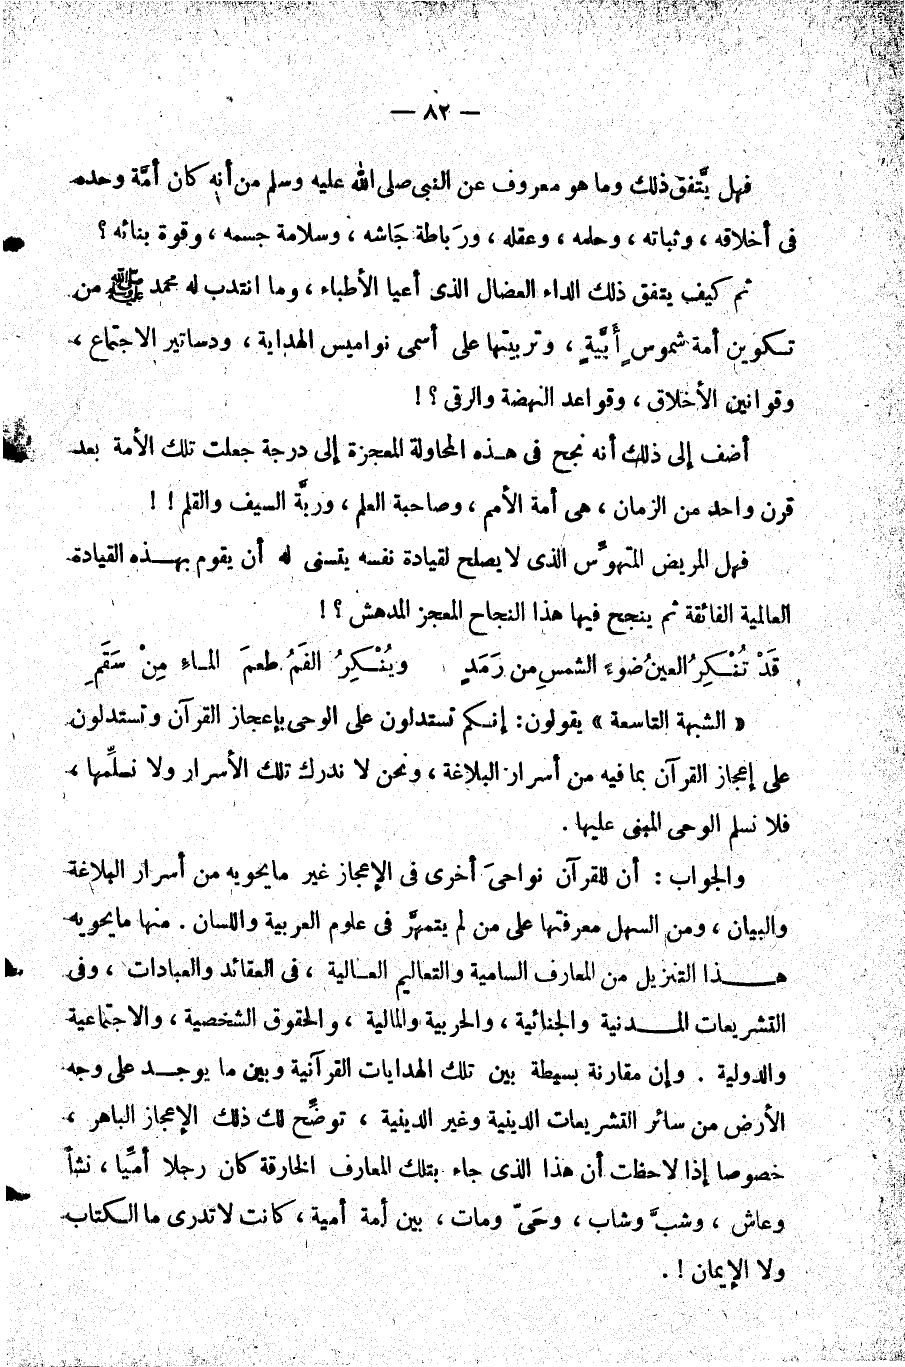 — ٨٢ —
فهل يتَّفق ذلك وما هو معروف عن النبى صلى الله عليه وسلم من أنه كان أمَّة وحده
فى أخلاقه ، وثباته ، وحلمه ، وعقله ، ورَباطة جَاشه ، وسلامة جسمه ، وقوة بنائه ؟
ثم كيف يتفق ذلك الداء العضال الذى أعيا الأطباء ، وما انتدب له محمد ﷺ من
تكوين أمة شموسٍ أَبِيَّةٍ ، وتربيتها على أسمى نواميس الهداية ، ودساتير الاجتماع ،
وقوانين الأخلاق ، وقواعد النهضة والرقى ؟ !
أضف إلى ذلك أنه نجح فى هذه المحاولة المعجزة إلى درجة جعلت تلك الأمة بعد
قرن واحد من الزمان ، هى أمة الأمم ، وصاحبة العلم ، وربَّة السيف والقلم ! !
فهل المريض المتهوِّس الذى لا يصلح لقيادة نفسه يتسنى له أن يقوم بهذه القيادة
العالمية الفائقة ثم ينجح فيها هذا النجاح المعجز المدهش ؟ !
قَدْ تُنْكِرُ العينُ ضوءَ الشمسِ من رَمَدٍ ويُنْكِرُ الفَمُ طعمَ الماءِ مِنْ سَقَمِ
« الشبهة التاسعة » يقولون : إنكم تستدلون على الوحى بإعجاز القرآن وتستدلون
على إعجاز القرآن بما فيه من أسرار البلاغة ، ونحن لا ندرك تلك الأسرار ولا نسلِّمها ،
فلا نسلم الوحى المبنى عليها .
والجواب : أن للقرآن نواحىَ أخرى فى الإعجاز غير ما يحويه من أسرار البلاغة
والبيان ، ومن السهل معرفتها على من لم يتمهَّر فى علوم العربية واللسان . منها ما يحويه
هذا التنزيل من المعارف السامية والتعاليم العالية ، فى العقائد والعبادات ، وفى
التشريعات المدنية والجنائية ، والحربية والمالية ، والحقوق الشخصية ، والاجتماعية
والدولية . وإن مقارنة بسيطة بين تلك الهدايات القرآنية وبين ما يوجد على وجه
الأرض من سائر التشريعات الدينية وغير الدينية ، توضِّح لك ذلك الإعجاز الباهر ،
خصوصا إذا لاحظت أن هذا الذى جاء بتلك المعارف الخارقة كان رجلا أميًّا ، نشأ
وعاش ، وشبَّ وشاب ، وحَىَّ ومات ، بين أمة أمية ، كانت لا تدرى ما الكتاب
ولا الإيمان ! .